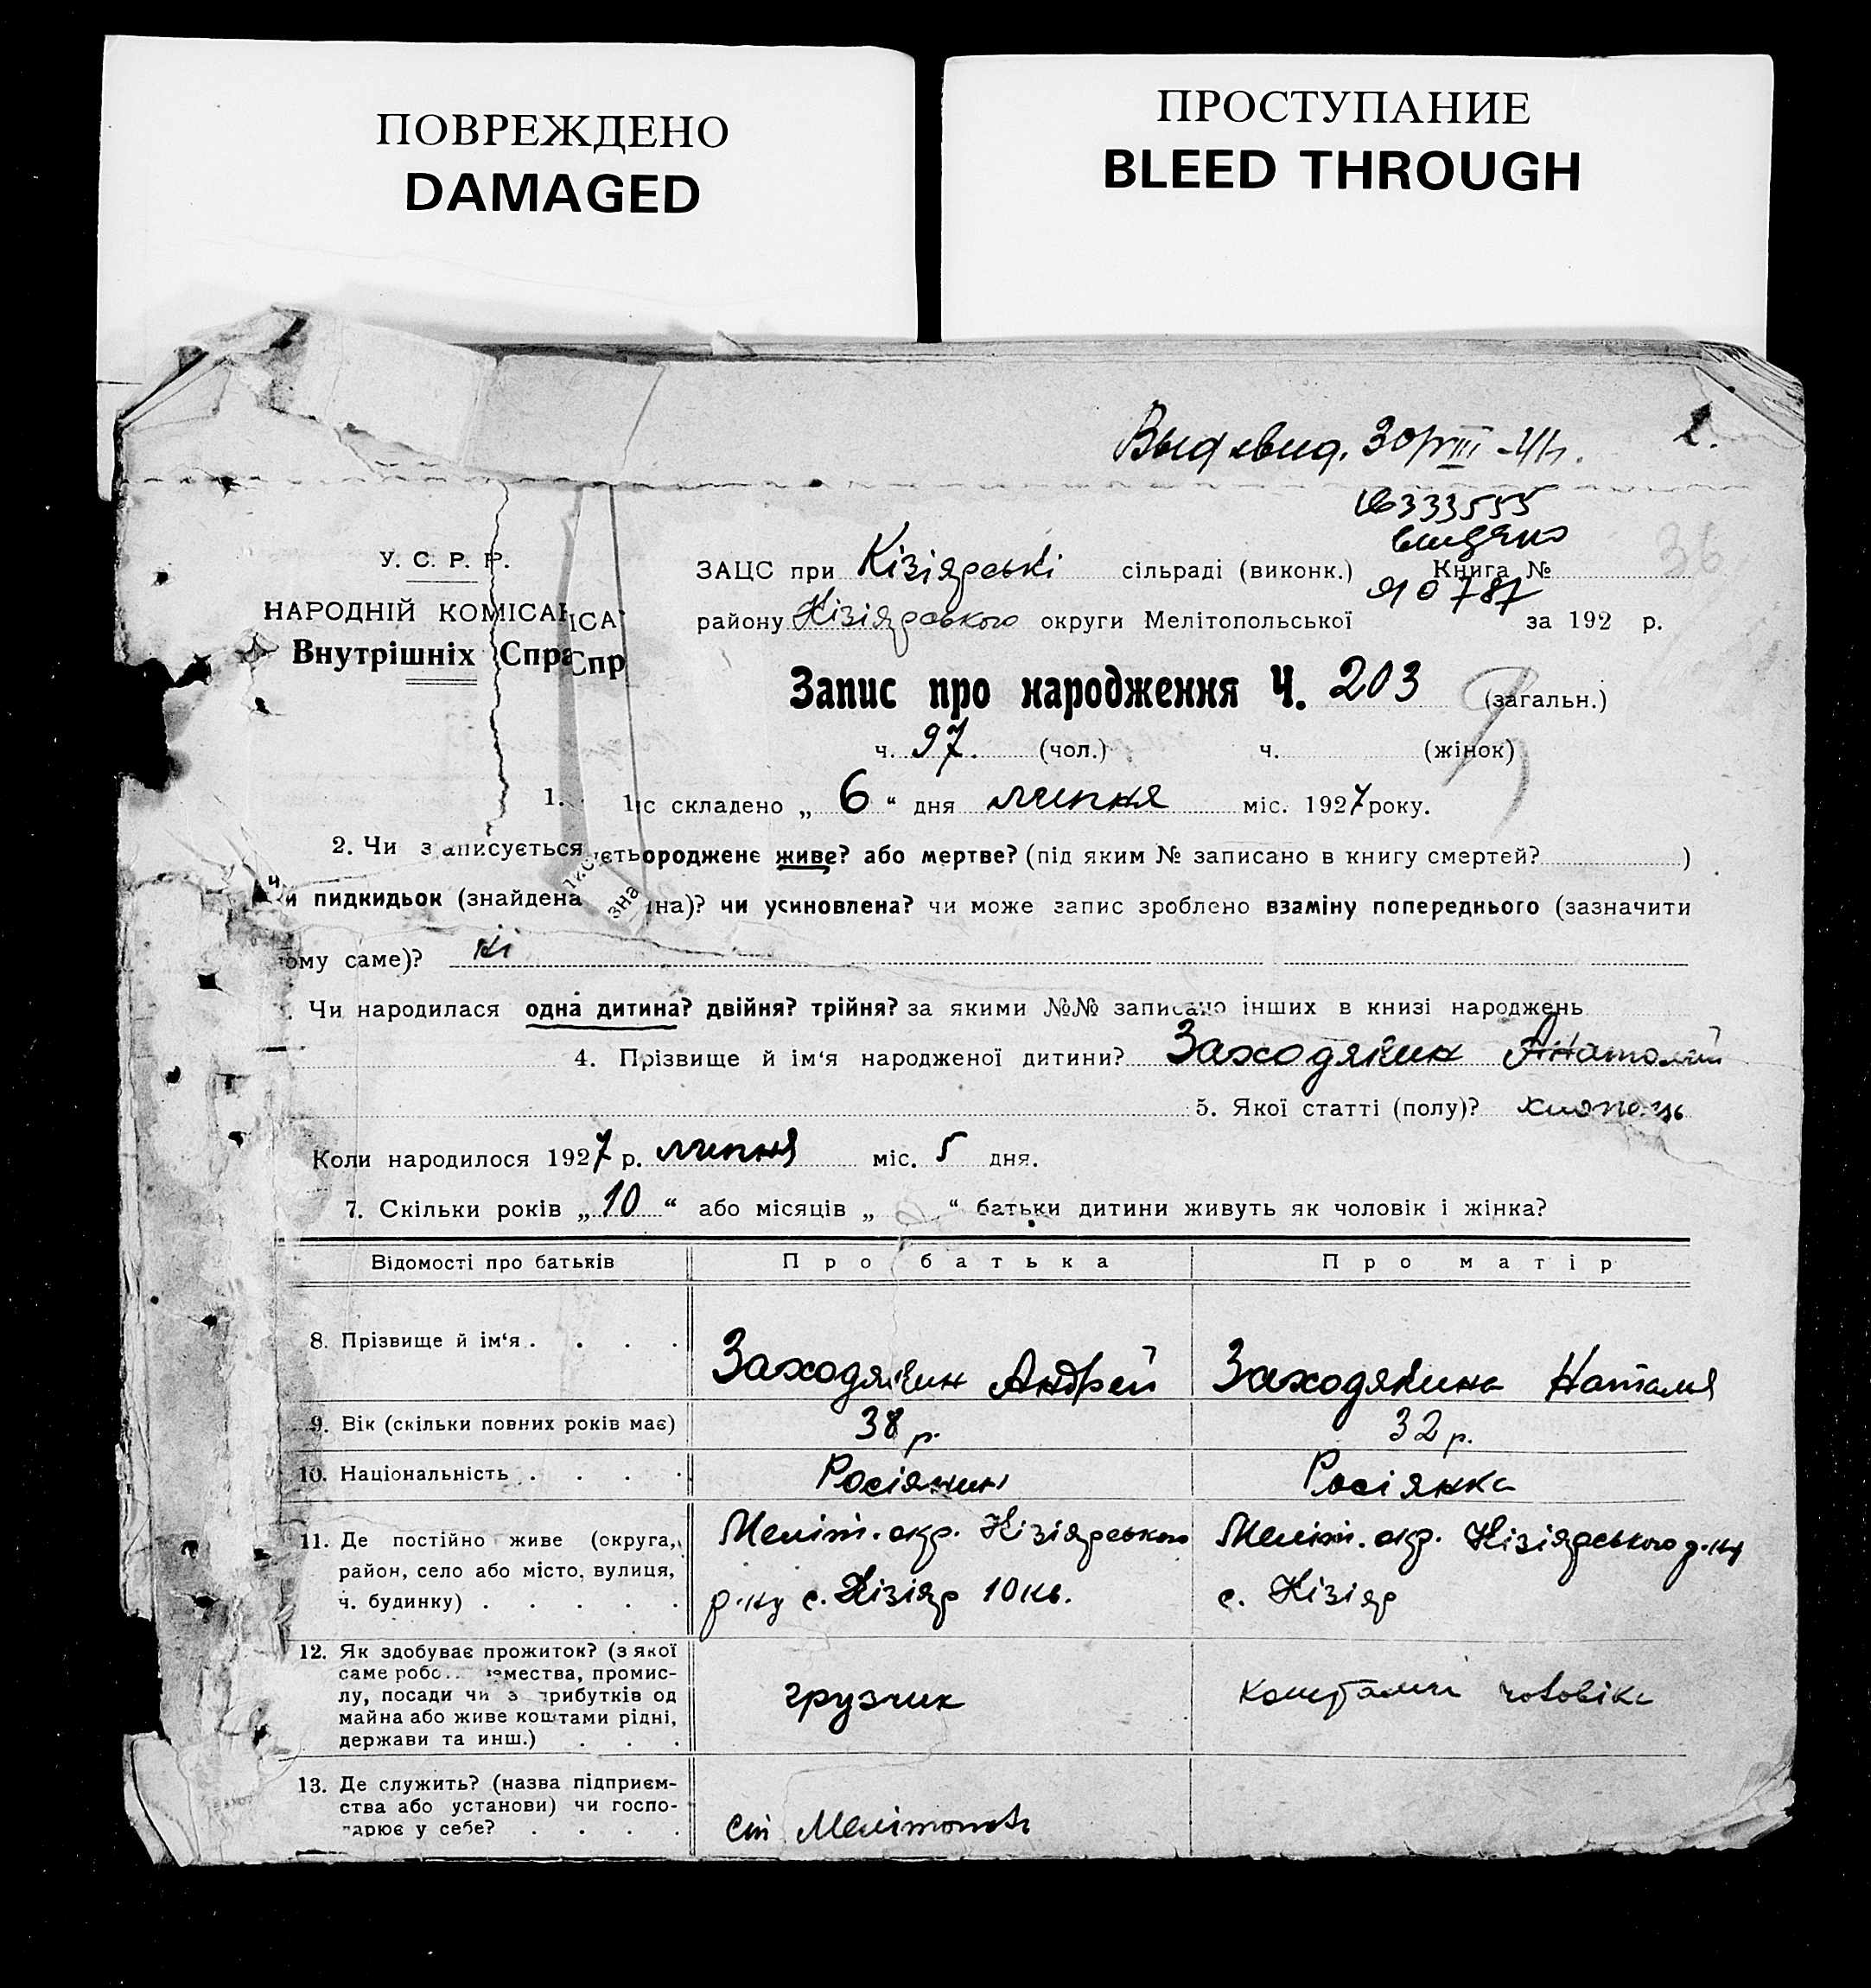 ПОВРЕЖДЕНО
DAMAGED
ПРОСТУПАНИЕ
BLEED THROUGH
2.
У. С. Р. Р.
НАРОДНІЙ КОМІСА
Внутрішніх Спра
ІСА
Спр
ЗАЦС при Кізіярські сільраді (виконк.) Книга № 36
району Кізіярського округи Мелітопольської за 192 р.
Запис про народження Ч. 203 (загальн.)
ч. 97. (чол.) ч. (жінок)
1. 1 с складено „ 6 “ дня липня міс. 1927 року.
2. Чи записується ороджене живе? або мертве? (під яким № записано в книгу смертей? )
чи пидкидьок (знайдена на)? чи усиновлена? чи може запис зроблено взаміну попереднього (зазначити
ому саме)? Ні
. Чи народилася одна дитина? двійня? трійня? за якими №№ записано інших в книзі народжень
4. Прізвище й ім‘я народженої дитини? Заходякин Анатолий
5. Якої статті (полу)? хлопець
Коли народилося 1927 р. липня міс. 5 дня.
7. Скільки років „ 10 “ або місяців „ “ батьки дитини живуть як чоловік і жінка?
Відомості про батьків Про батька Про матір
8. Прізвище й ім‘я . . . . Заходякин Андрей Заходякина Наталия
9. Вік (скільки повних років має) 38 р. 32 р.
10. Національність . . . . Росіянин Росіянка
11. Де постійно живе (округа, район, село або місто, вулиця, ч. будинку) . . . . .
Меліт. окр. Кізіярського
р-ну с. Кізіяр 10 кв.
Меліт. окр. Кізіярського р-ну
с. Кізіяр
12. Як здобуває прожиток? (з якої
саме робо.. мества, промис-
лу, посади чи з прибутків од
майна або живе коштами рідні,
держави та инш.) . . .
грузчик
коштами чоловіка
13. Де служить? (назва підприєм-
ства або установи) чи госпо-
дарює у себе? . . . .
ст Мелітополь